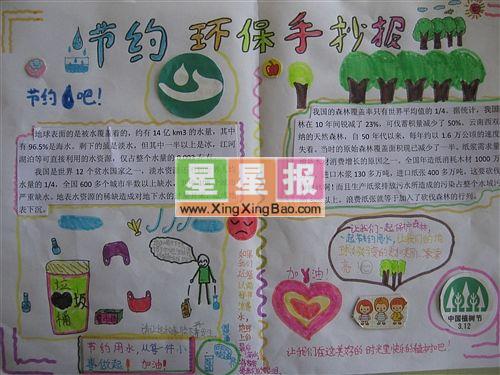 节约 环保手抄报
节约吧！
地球表面的是被水覆盖着的，约有14亿km3的水量，其中
有96.5%是海水。剩下的虽是淡水，但其中一半以上是冰，江河
湖泊等可直接利用的水资源，仅占整个水量的
我国是世界12个贫水国家之一，淡水资源
水量的1/4。全国600多个城市半数以上缺水，
严重缺水。地表水资源的稀缺造成对地下水的
表下沉。
我国的森林覆盖率只有世界平均值的1/4。据统计，我国森
林在10年间锐减了23%，可伐蓄积量减少了50%。云南西双版
纳的天然森林，自50年代以来，每年约以1.6万公顷的速度
失着。当时的原始森林覆盖面积现已减少了一半。纸浆需求量
消费增长的原因之一。全国年造纸消耗木材1000万
进口木浆130多万吨，进口纸张400多万吨，这要砍伐
啊！而且生产纸浆排放污水所造成的污染占整个水域
以上。浪费纸张就等于加入了砍伐森林的行列。
星星报
www.XingXingBao.com
让我们一起保护森林，
一起节约用水，让我们的地
垃圾桶
加油！
中国植树节
3.12
节约用水，从每件小
事做起！加油！
让我们在这美好的时光里快乐的植树吧！